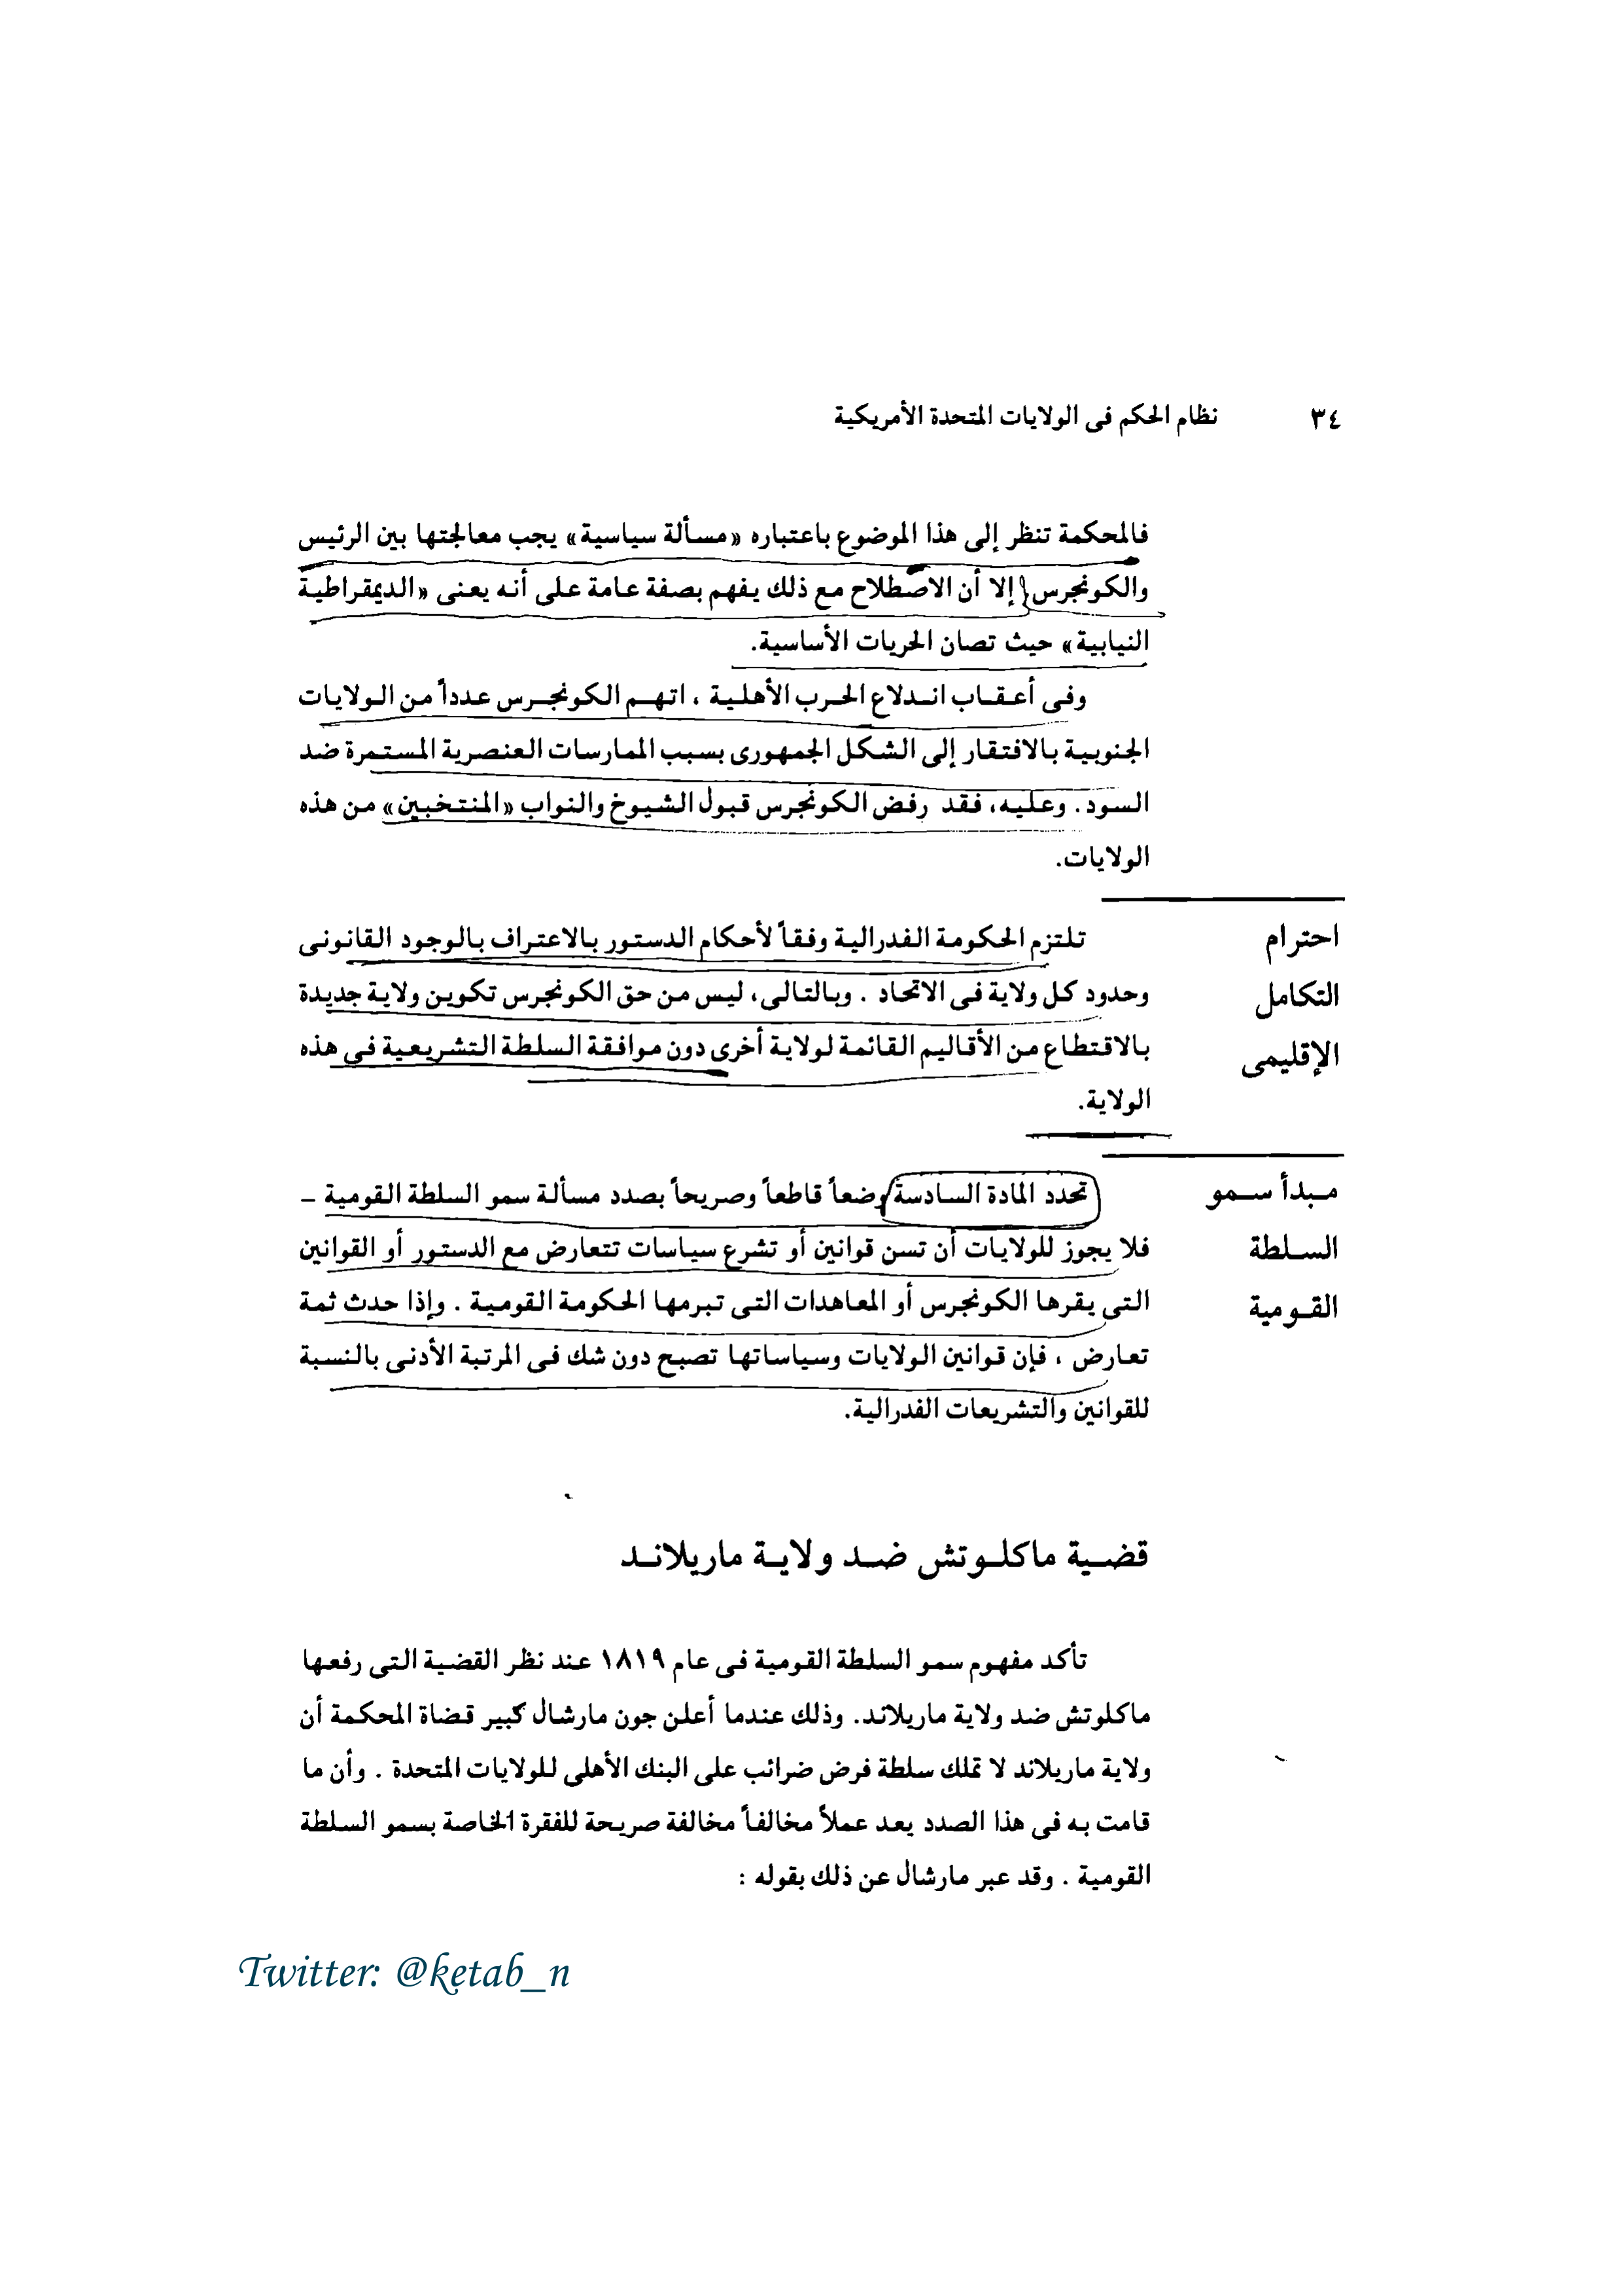 ٣٤ نظام الحكم فى الولايات المتحدة الأمريكية
فالمحكمة تنظر إلى هذا الموضوع باعتباره «مسألة سياسية» يجب معالجتها بين الرئيس
والكونجرس إلا أن الاصطلاح مع ذلك يفهم بصفة عامة على أنه يعنى «الديمقراطية
النيابية» حيث تصان الحريات الأساسية.
وفى أعقاب اندلاع الحرب الأهلية ، اتهم الكونجرس عدداً من الولايات
الجنوبية بالافتقار إلى الشكل الجمهورى بسبب الممارسات العنصرية المستمرة ضد
السود. وعليه، فقد رفض الكونجرس قبول الشيوخ والنواب «المنتخبين» من هذه
الولايات.
احترام
التكامل
الإقليمى
تلتزم الحكومة الفدرالية وفقاً لأحكام الدستور بالاعتراف بالوجود القانونى
وحدود كل ولاية فى الاتحاد . وبالتالى، ليس من حق الكونجرس تكوين ولاية جديدة
بالاقتطاع من الأقاليم القائمة لولاية أخرى دون موافقة السلطة التشريعية فى هذه
الولاية.
مبدأ سمو
السلطة
القومية
تحدد المادة السادسة وضعاً قاطعاً وصريحاً بصدد مسألة سمو السلطة القومية –
فلا يجوز للولايات أن تسن قوانين أو تشرع سياسات تتعارض مع الدستور أو القوانين
التى يقرها الكونجرس أو المعاهدات التى تبرمها الحكومة القومية . وإذا حدث ثمة
تعارض ، فإن قوانين الولايات وسياساتها تصبح دون شك فى المرتبة الأدنى بالنسبة
للقوانين والتشريعات الفدرالية.
قضية ماكلوتش ضد ولاية ماريلاند
تأكد مفهوم سمو السلطة القومية فى عام ١٨١٩ عند نظر القضية التى رفعها
ماكلوتش ضد ولاية ماريلاند. وذلك عندما أعلن جون مارشال كبير قضاة المحكمة أن
ولاية ماريلاند لا تملك سلطة فرض ضرائب على البنك الأهلى للولايات المتحدة . وأن ما
قامت به فى هذا الصدد يعد عملاً مخالفاً مخالفة صريحة للفقرة الخاصة بسمو السلطة
القومية . وقد عبر مارشال عن ذلك بقوله :
Twitter: @ketab_n